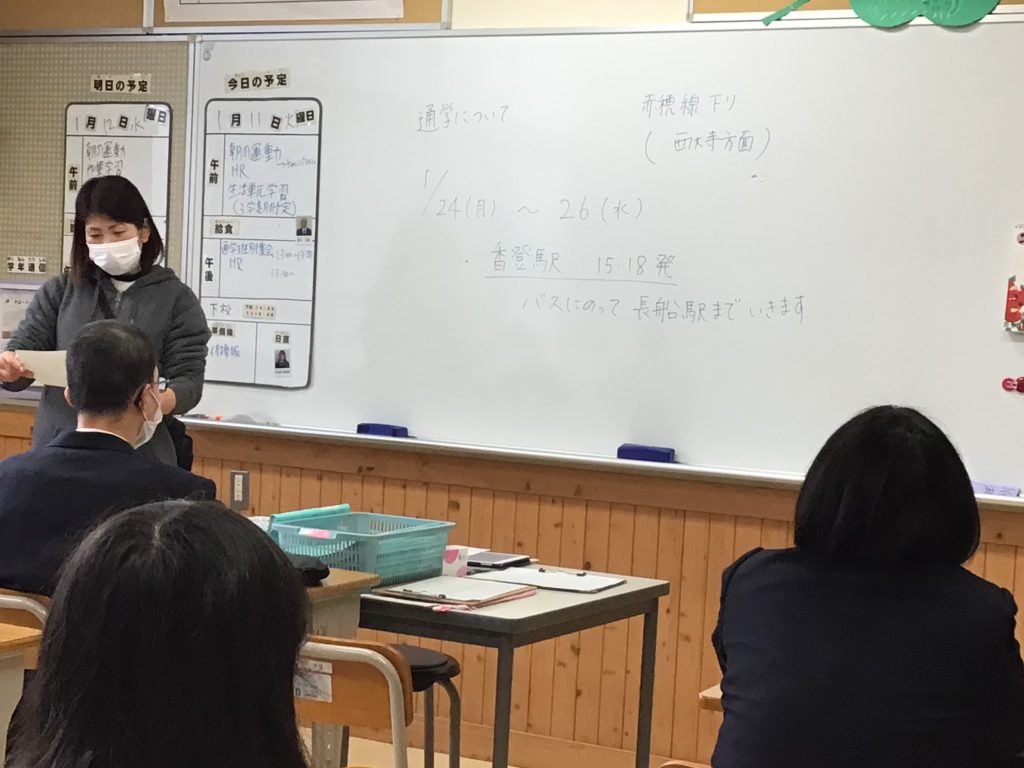 明日の予定
1月12日水曜日
午前
朝の運動
作業学習
学年通信
今日の予定
1月11日火曜日
午前
朝の運動
HR
生活単元学習
(3学期の予定)
給食
午後
通学班別集会
HR
下校
日直
通学について
1/24(月) ~ 26(水)
香登駅 15:18発
バスにのって 長船駅まで いきます
赤穂線 下り
(西大寺方面)